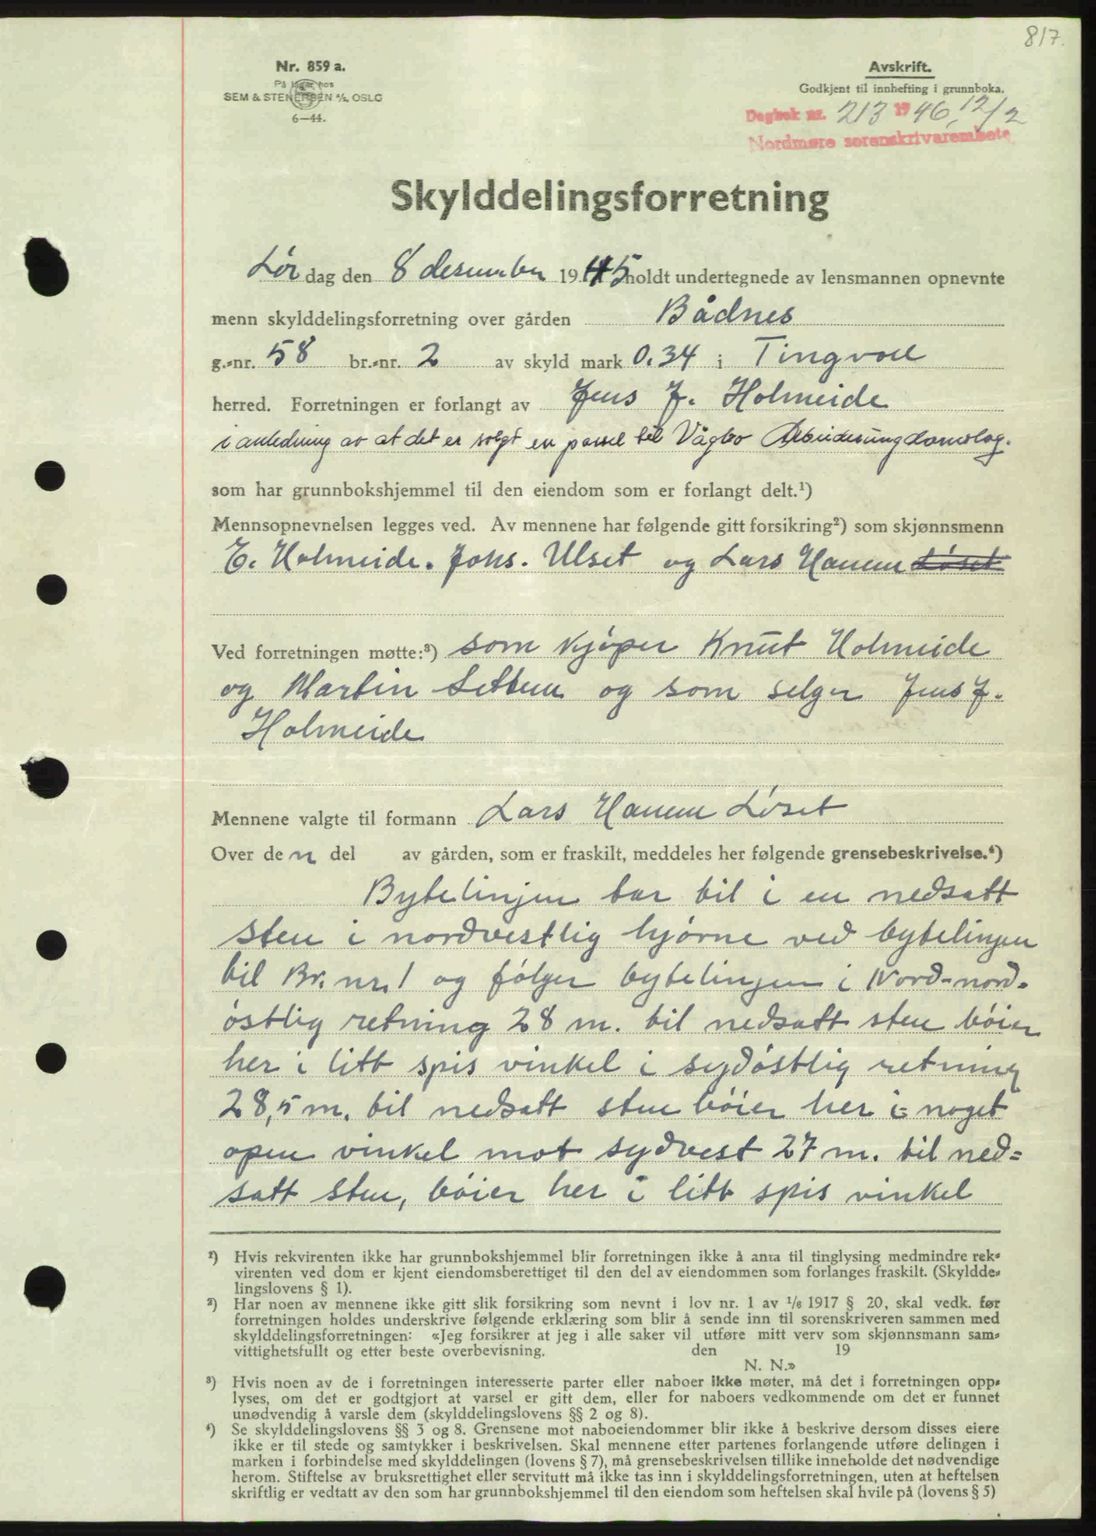 817.
Nr. 859 a.
På lager hos
SEM & STENERSEN A/S, OSLO
6—44.
Avskrift.
Godkjent til innhefting i grunnboka.
Dagbok nr. 213 1946, 12/2
Nordmøre sorenskriverembete
Skylddelingsforretning
Lør dag den 8 desember 1945 holdt undertegnede av lensmannen opnevnte
menn skylddelingsforretning over gården Bådnes
g.-nr. 58 br.-nr. 2 av skyld mark 0.34 i Tingvoll
herred. Forretningen er forlangt av Jens J. Holmeide
i anledning av at det er solgt en parsel til Vågbo Arbeiderungdomslag.
som har grunnbokshjemmel til den eiendom som er forlangt delt.¹)
Mennsopnevnelsen legges ved. Av mennene har følgende gitt forsikring²) som skjønnsmenn
E. Holmeide. Johs. Ulset og Lars Hanem Løset
Ved forretningen møtte:³) som kjøper Knut Holmeide
og Martin Settem og som selger Jens J.
Holmeide
Mennene valgte til formann Lars Hanem Løset
Over den del av gården, som er fraskilt, meddeles her følgende grensebeskrivelse.⁴)
Bytelinjen tar til i en nedsatt
sten i nordvestlig hjørne ved bytelingen
til Br. nr. 1 og følger bytelingen i Nord-nord-
østlig retning 28 m. til nedsatt sten bøier
her i litt spis vinkel i sydøstlig retning
28,5 m. til nedsatt sten bøier her i noget
open vinkel mot sydvest 27 m. til ned=
satt sten, bøier her i litt spis vinkel
¹) Hvis rekvirenten ikke har grunnbokshjemmel blir forretningen ikke å anta til tinglysing medmindre rek-
virenten ved dom er kjent eiendomsberettiget til den del av eiendommen som forlanges fraskilt. (Skyldde-
lingslovens § 1).
²) Har noen av mennene ikke gitt slik forsikring som nevnt i lov nr. 1 av 1/6 1917 § 20, skal vedk. før
forretningen holdes underskrive følgende erklæring som blir å sende inn til sorenskriveren sammen med
skylddelingsforretningen: «Jeg forsikrer at jeg i alle saker vil utføre mitt verv som skjønnsmann sam-
vittighetsfullt og etter beste overbevisning. den 19
N. N.»
³) Hvis noen av de i forretningen interesserte parter eller naboer ikke møter, må det i forretningen opp-
lyses, om det er godtgjort at varsel er gitt dem, eller for naboers vedkommende om det er funnet
unødvendig å varsle dem (skylddelingslovens §§ 2 og 8).
⁴) Se skylddelingslovens §§ 3 og 8. Grensene mot naboeiendommer blir ikke å beskrive dersom disses eiere
ikke er til stede og samtykker i beskrivelsen. Skal mennene etter partenes forlangende utføre delingen i
marken i forbindelse med skylddelingen (lovens § 7), må grensebeskrivelsen tillike inneholde det nødvendige
herom. Stiftelse av bruksrettighet eller servitutt må ikke tas inn i skylddelingsforretningen, uten at heftelsen
skriftlig er vedtatt av den som har grunnbokshjemmel til den eiendom som heftelsen skal hvile på (lovens § 5)